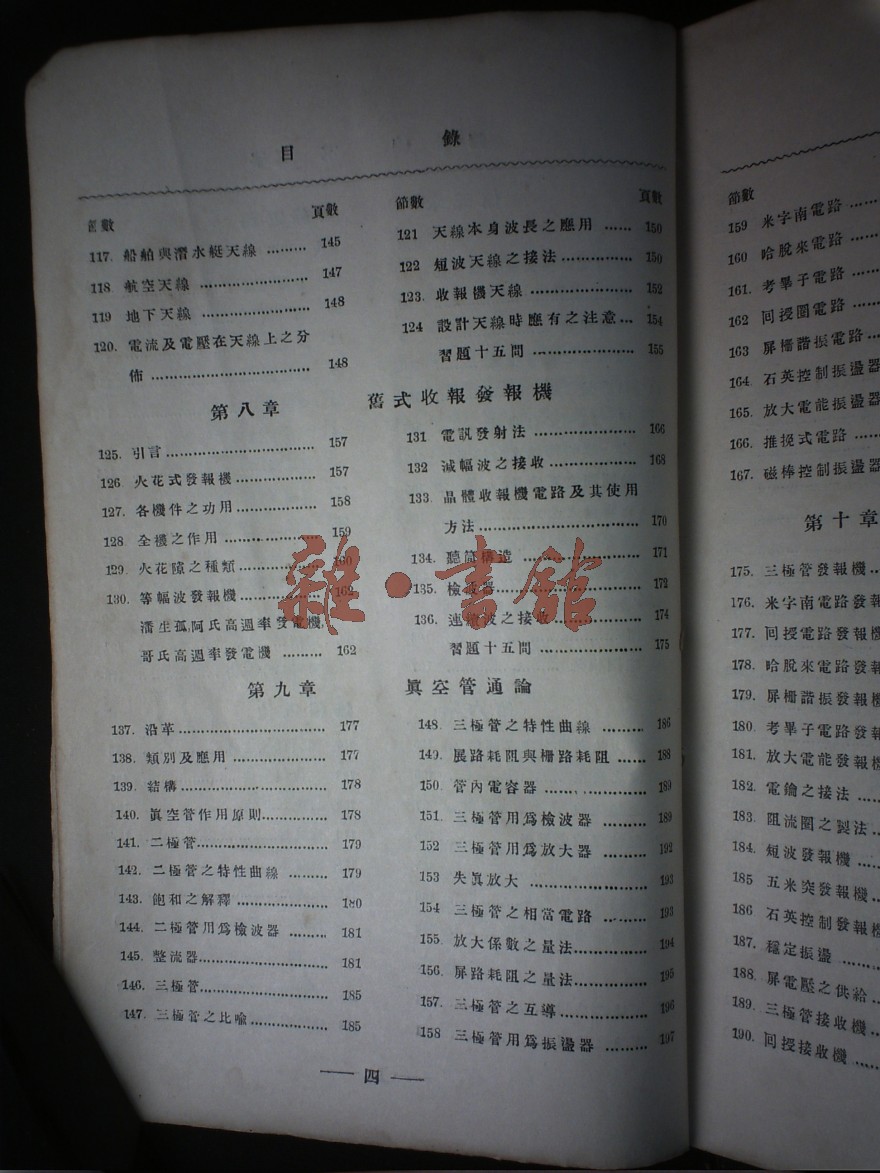 目 錄
節數 頁數
117. 船舶與潛水艇天線 ……… 145
118 航空天線 ……………… 147
119 地下天線 ……………… 148
120. 電流及電壓在天線上之分
佈 ……………………… 148
節數 頁數
121 天線本身波長之應用 …… 150
122 短波天線之接法 ………… 150
123. 收報機天線 ……………… 152
124 設計天線時應有之注意… 154
習題十五問 ……………… 155
第八章 舊式收報發報機
125. 引言 …………………… 157
126 火花式發報機 ………… 157
127. 各機件之功用 ………… 158
128 全機之作用 …………… 159
129. 火花隙之種類 ………… 160
130. 等幅波發報機 ………… 162
潘生孤,阿氏高週率發電機,
哥氏高週率發電機 ……… 162
131 電訊發射法 …………… 166
132 減幅波之接收 ………… 168
133. 晶體收報機電路及其使用
方法 …………………… 170
134. 聽筒構造 ……………… 171
135. 檢波器 ………………… 172
136. 連續波之接收 ………… 174
習題十五問 …………… 175
第九章 眞空管通論
137. 沿革 …………………… 177
138. 類別及應用 …………… 177
139. 結構 …………………… 178
140. 眞空管作用原則………… 178
141. 二極管 ………………… 179
142. 二極管之特性曲線 …… 179
143. 飽和之解釋 …………… 180
144. 二極管用爲檢波器 …… 181
145. 整流器 ………………… 181
146. 三極管 ………………… 185
147. 三極管之比喻 ………… 185
148. 三極管之特性曲線 …… 186
149. 展路耗阻與柵路耗阻 …… 188
150. 管內電容器 …………… 189
151. 三極管用爲檢波器 …… 189
152 三極管用爲放大器 …… 192
153 失眞放大 ……………… 193
154 三極管之相當電路 …… 193
155. 放大係數之量法 ……… 194
156. 屏路耗阻之量法 ……… 195
157. 三極管之互導 ………… 196
158 三極管用爲振盪器 …… 197
— 四 —
節數
159 米字南電路 ……
160 哈脫來電路 ……
161. 考畢子電路 ……
162 回授圈電路 ……
163 屏柵諧振電路……
164. 石英控制振盪器
165. 放大電能振盪器
166. 推挽式電路 ……
167. 磁棒控制振盪器
第十章
175. 三極管發報機……
176. 米字南電路發報
177. 回授電路發報機
178. 哈脫來電路發報
179. 屏柵諧振發報機
180. 考畢子電路發報
181. 放大電能發報機
182. 電鑰之接法 ……
183. 阻流圈之製法 …
184. 短波發報機 ……
185 五米突發報機 …
186 石英控制發報機
187. 穩定振盪 ………
188. 屏電壓之供給 …
189. 三極管接收機 …
190. 回授接收機 ……
雜·書館